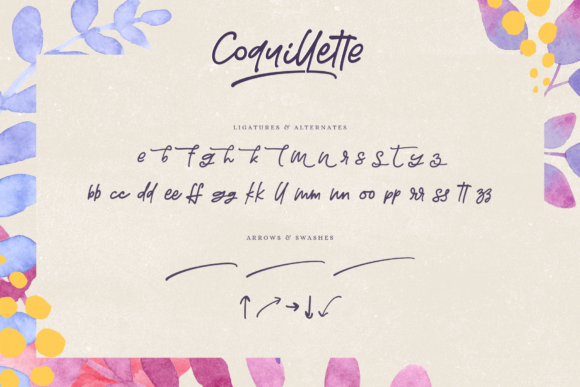 Coquillette
LIGATURES & ALTERNATES
e b f g h k l m n r s s t y z
bb cc dd ee ff gg kk ll mm nn oo pp rr ss tt zz
ARROWS & SWASHES
↑ ↗ → ↓ ↙